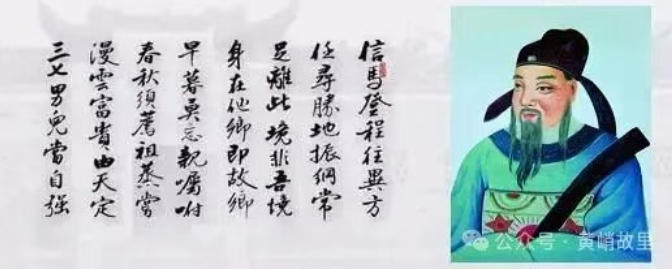 信馬登程往異方
任尋勝地振綱常
足離此境非吾境
身在他鄉即故鄉
早暮莫忘親囑咐
春秋須薦祖蒸嘗
漫雲富貴由天定
三七男兒當自强
公众号·黄峭故里